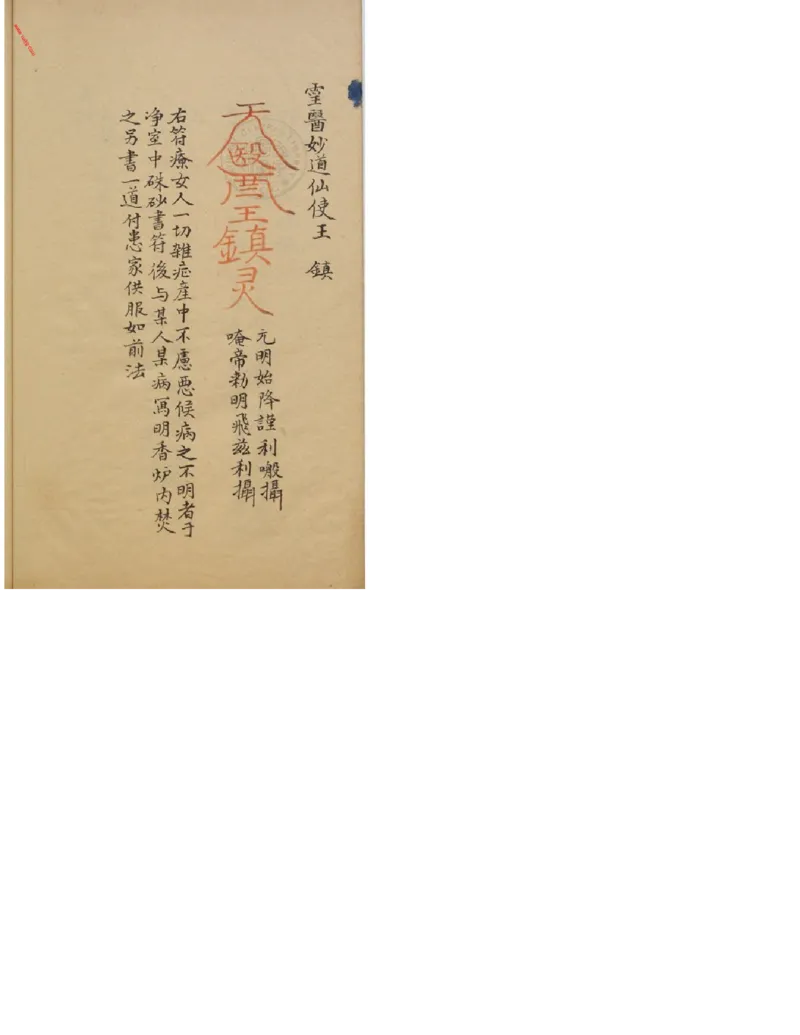 霊醫妙道仙使王 鎮
王鎮灵
元明始降謹利喞攝
唵帝勑明飛茲利攝
右符療女人一切雜症產中不慮惡候病之不明者于
净室中硃砂書符後与某人某病寫明香炉内焚
之另書一道付患家供服如前法